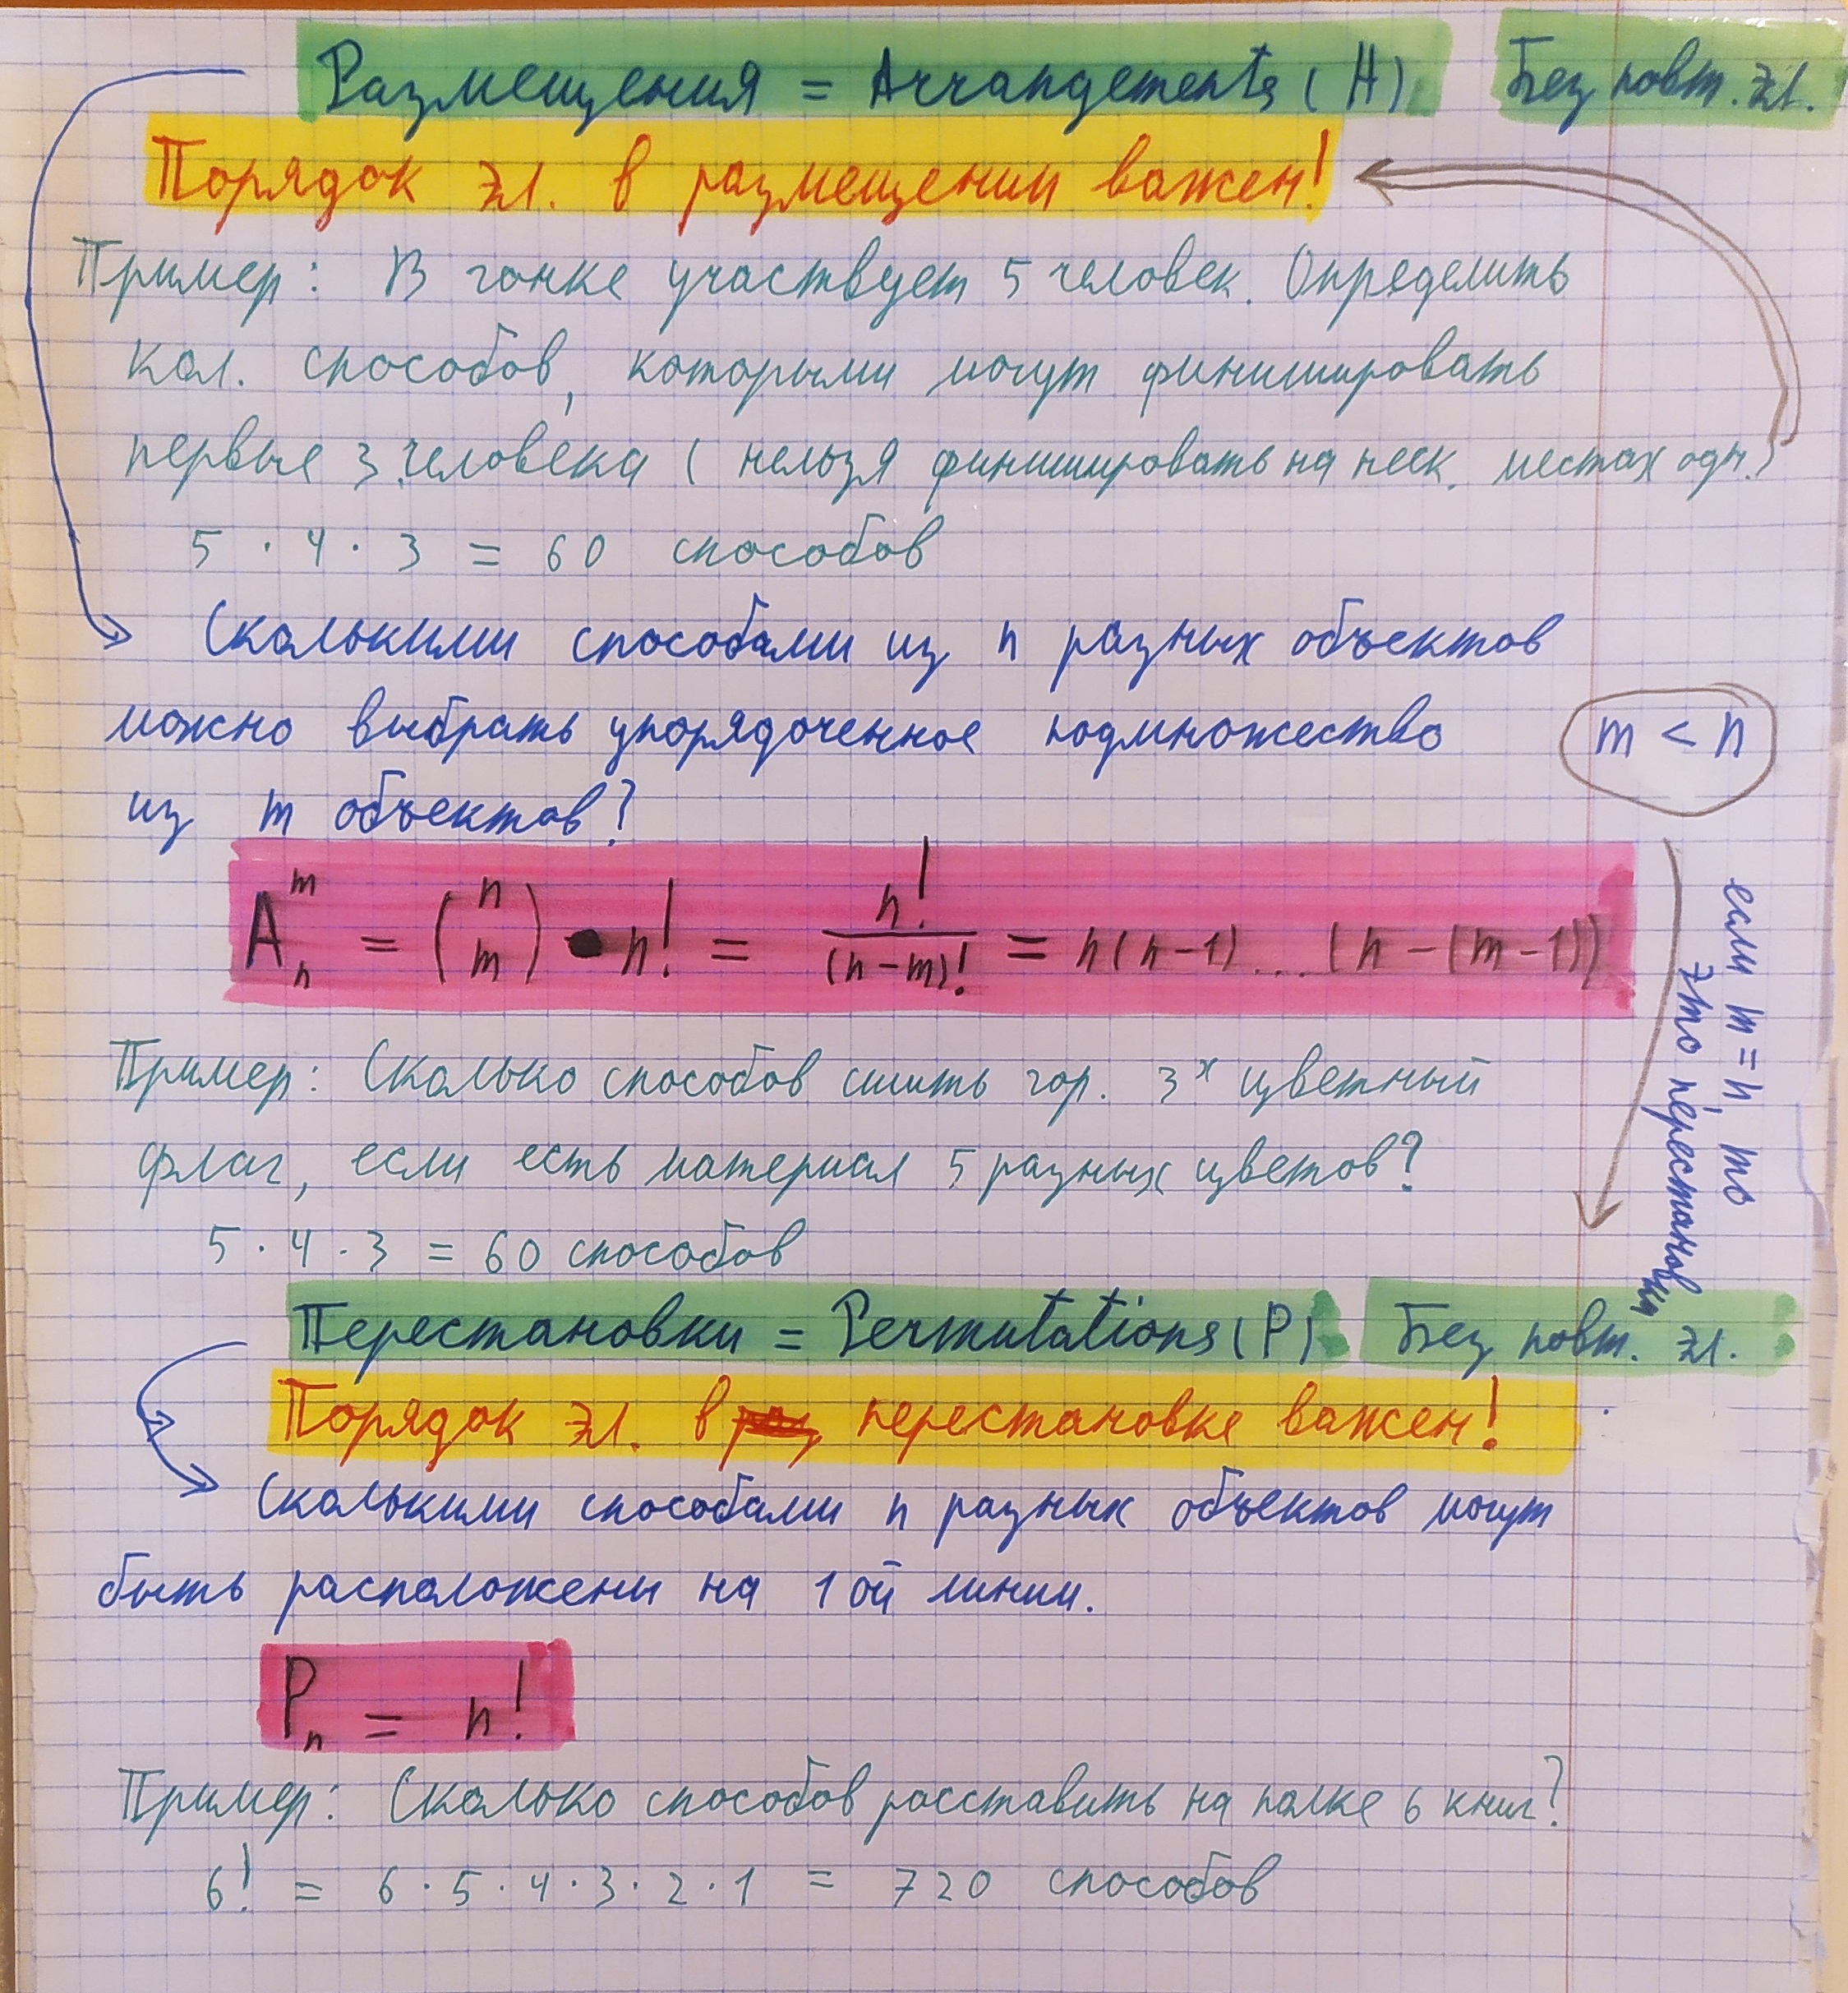 Размещения = Arrangements (A) Без повт. эл.
Порядок эл. в размещении важен!
Пример: В гонке участвует 5 человек. Определить
кол. способов, которыми могут финишировать
первые 3 человека ( нельзя финишировать на неск. местах одн.)
5 · 4 · 3 = 60 способов
Сколькими способами из n разных объектов
можно выбрать упорядоченное подмножество
m < n
из m объектов?
A_n^m = (n m) • n! = n!/(n-m)! = n(n-1)...(n-(m-1))
если m = n, то
это перестановки
Пример: Сколько способов сшить гор. 3х цветный
флаг, если есть материал 5 разных цветов?
5 · 4 · 3 = 60 способов
Перестановки = Permutations (P) Без повт. эл.
Порядок эл. в перестановке важен!
Сколькими способами n разных объектов могут
быть расположены на 1ой линии.
P_n = n!
Пример: Сколько способов расставить на полке 6 книг?
6! = 6 · 5 · 4 · 3 · 2 · 1 = 720 способов